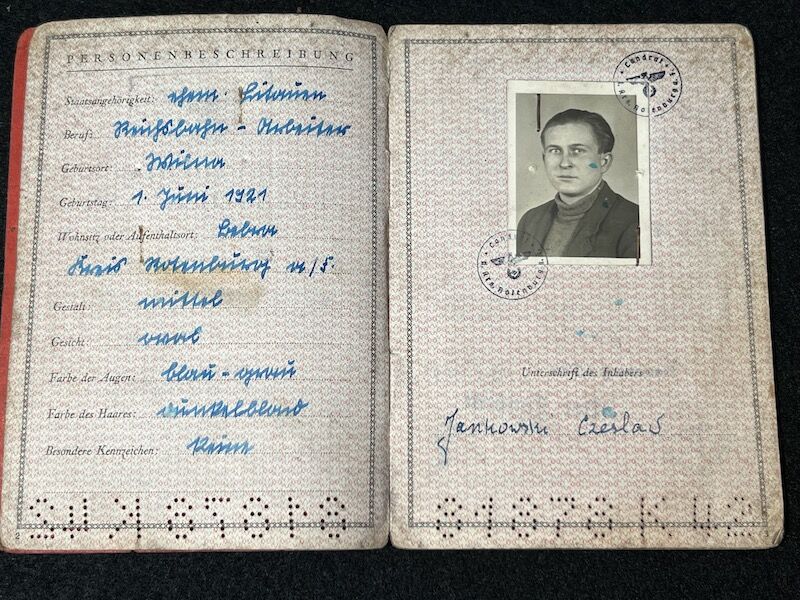 PERSONENBESCHREIBUNG
Staatsangehörigkeit: ehem. Litauen
Beruf: Reichsbahn - Arbeiter
Geburtsort: Wilna
Geburtstag: 1. Juni 1921
Wohnsitz oder Aufenthaltsort: Bebra
Kreis Rotenburg a/F.
Gestalt: mittel
Gesicht: oval
Farbe der Augen: blau - grau
Farbe des Haares: dunkelblond
Besondere Kennzeichen: Keine
2
Landrat
Rotenburg a.
Landrat
Rotenburg a.
Unterschrift des Inhabers
Jankowski Czeslaw
3